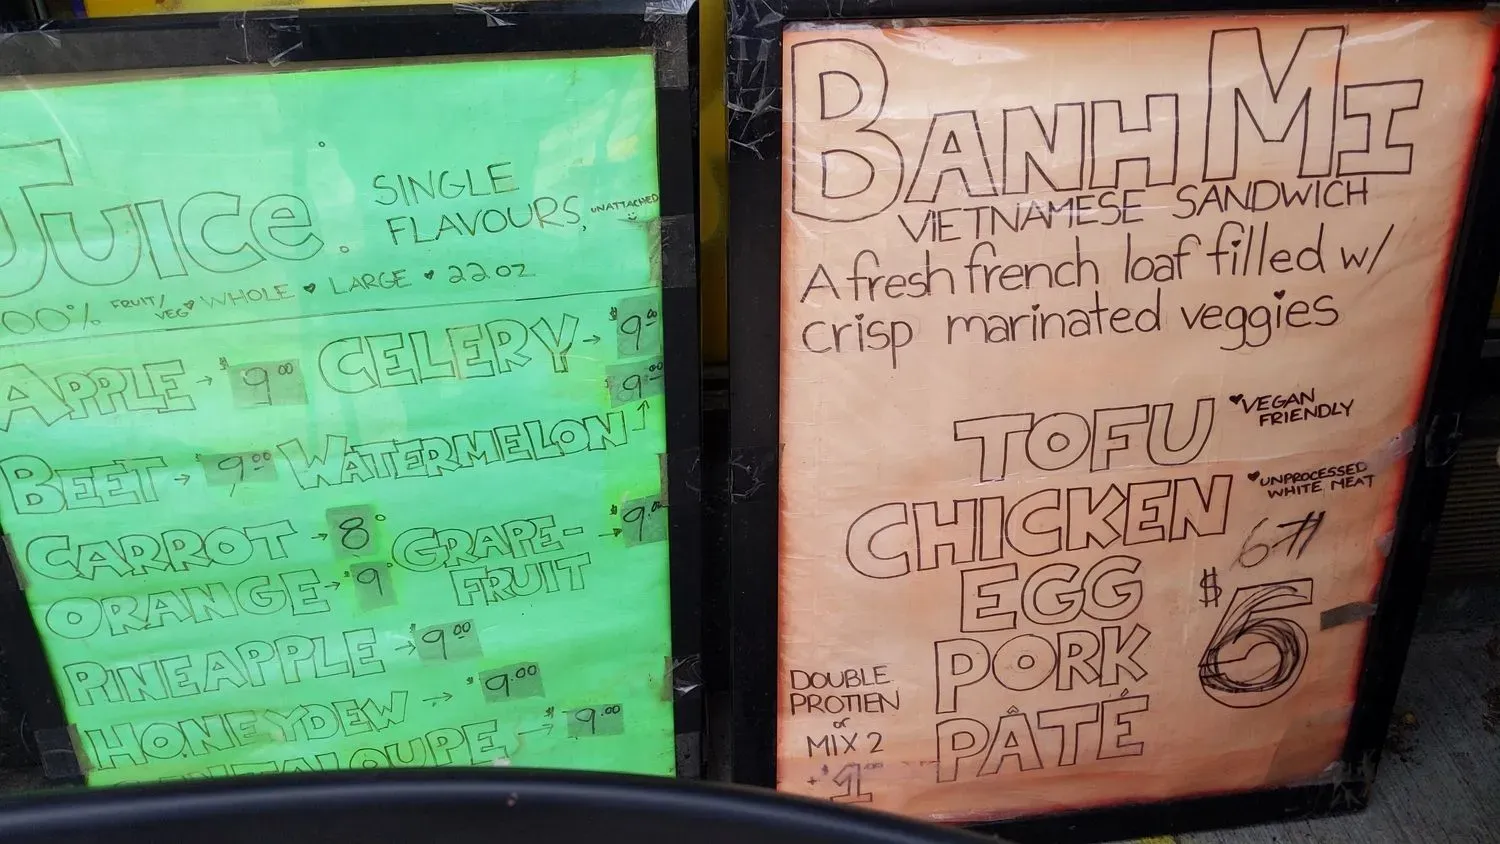 Juice.
SINGLE
FLAVOURS, UNATTACHED
00% FRUIT/VEG ♥ WHOLE ♥ LARGE ♥ 22 OZ
APPLE → $9.00
CELERY → $9.00
BEET → $9.00
WATERMELON → $9.00
CARROT → 8
GRAPE-
FRUIT → $9.00
ORANGE → $9
PINEAPPLE → 9.00
HONEYDEW → $9.00
CANTALOUPE → $9.00
BANH MI
VIETNAMESE SANDWICH
A fresh french loaf filled w/
crisp marinated veggies
TOFU ♥ VEGAN
FRIENDLY
CHICKEN ♥ UNPROCESSED
WHITE MEAT
EGG
PORK
PÂTÉ
$6
DOUBLE
PROTIEN
or
MIX 2
+ $1.00